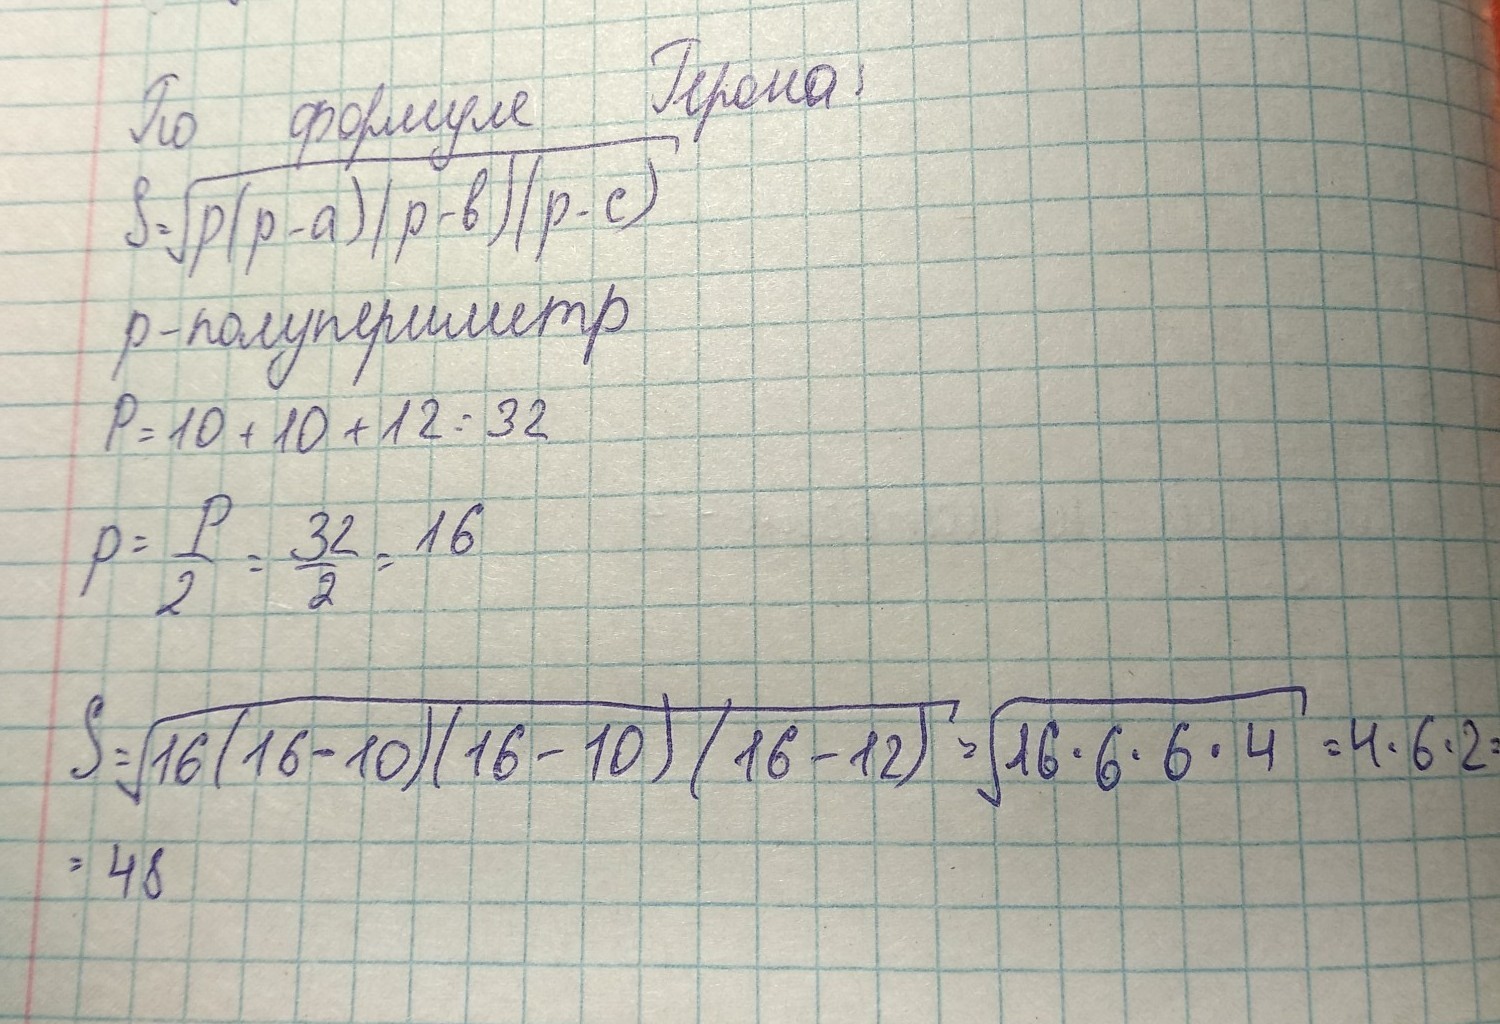 По формуле Герона:
S=√p(p-a)(p-в)(p-c)
p-полупериметр
P=10+10+12=32
p=P/2=32/2=16
S=√16(16-10)(16-10)(16-12)=√16·6·6·4=4·6·2=
=48